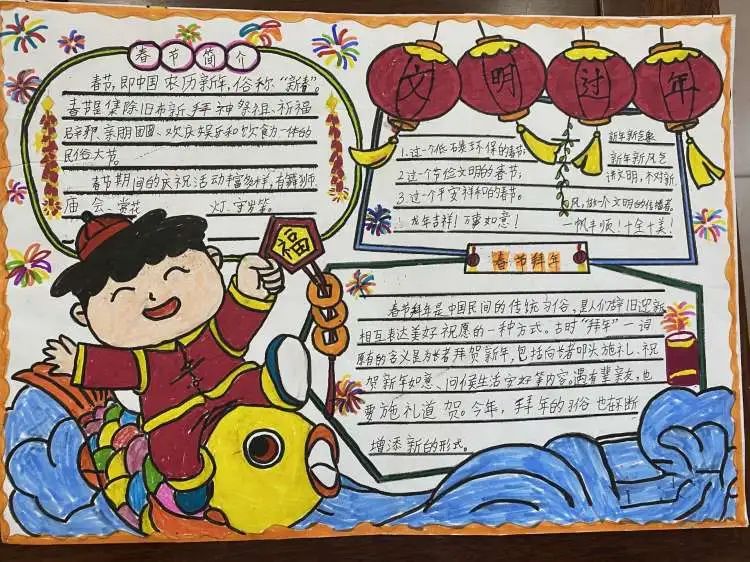 春节简介
春节,即中国农历新年,俗称“新春”。
春节是集除旧布新、拜神祭祖、祈福
辟邪、亲朋团圆、欢庆娱乐和饮食为一体的
民俗大节。
春节期间的庆祝活动丰富多样,有舞狮
庙会、赏花 灯、守岁等。
文明过年
1.过一个低碳环保的春节;
2.过一个节俭文明的春节;
3.过一个平安祥和的春节。
龙年吉祥!万事如意!
新年新气象
新年新风气
讲文明,不对新
风,做一个文明的传播者
一帆丰顺!十全十美!
福
春节拜年
春节拜年是中国民间的传统习俗,是人们辞旧迎新
相互表达美好祝愿的一种方式。古时“拜年”一词
原有的含义是为长者拜贺新年,包括向长者叩头施礼、祝
贺新年如意、问候生活安好等内容。遇有辈亲友,也
要施礼道贺。今年,拜年的习俗也在断
增添新的形式。